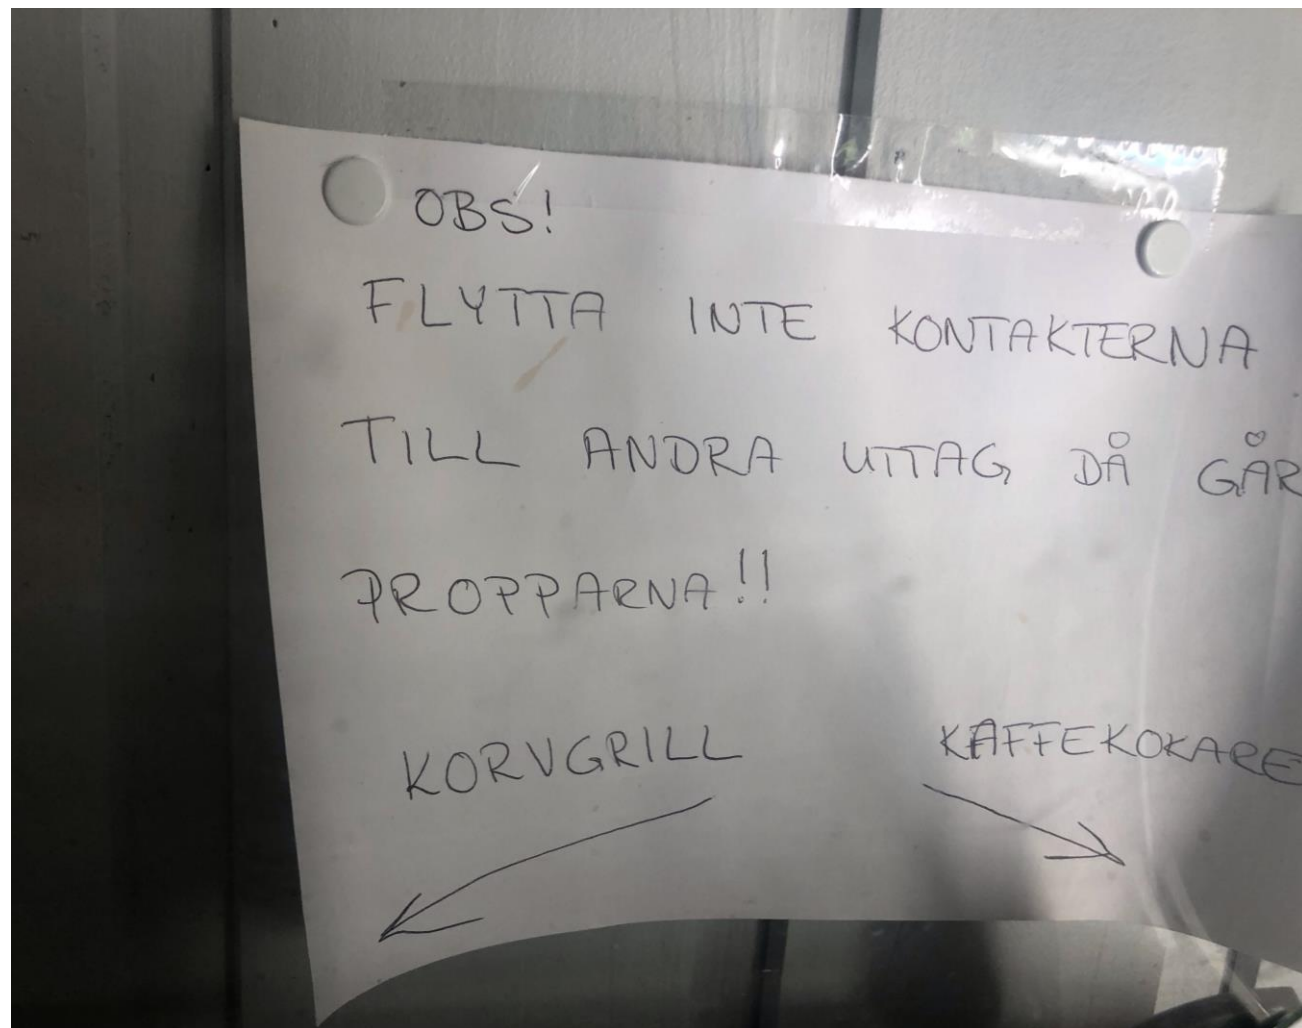 OBS!
FLYTTA INTE KONTAKTERNA
TILL ANDRA UTTAG, DÅ GÅR
PROPPARNA!!
KORVGRILL KAFFEKOKARE